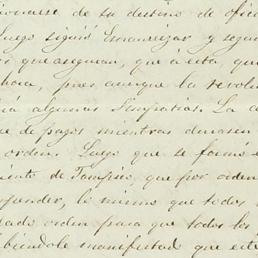 cionarse de su destino de ofic
Luego siguió
ri que aseguran, que á esta, que
ahora, pues aunque la revolu
rá algunas simpatias. La c
ue de pagos mientras durasen
orden. Luego que se formó e
ento de Tampico, que por orden
fender, lo mismo que todos l
dado orden para que todos los
biendole manifestado que este